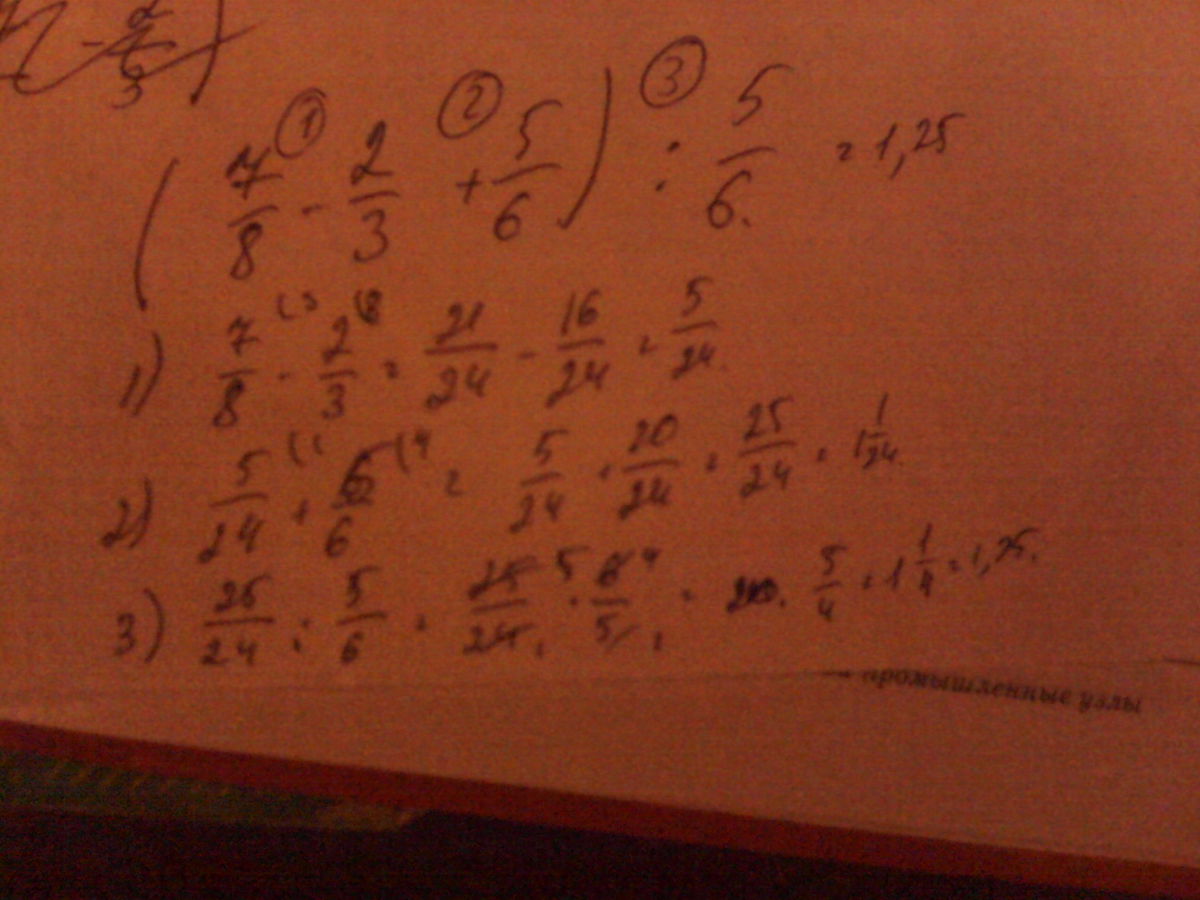 (7/8 - 2/3 + 5/6) : 5/6 = 1,25
① ② ③
1) 7/8 (3 - 2/3 (8 = 21/24 - 16/24 = 5/24
2) 5/24 (1 + 5/6 (4 = 5/24 + 20/24 = 25/24 = 1 1/24
3) 25/24 : 5/6 = 25/24 · 6/5 = 5/4 = 1 1/4 = 1,25.
промышленные узлы